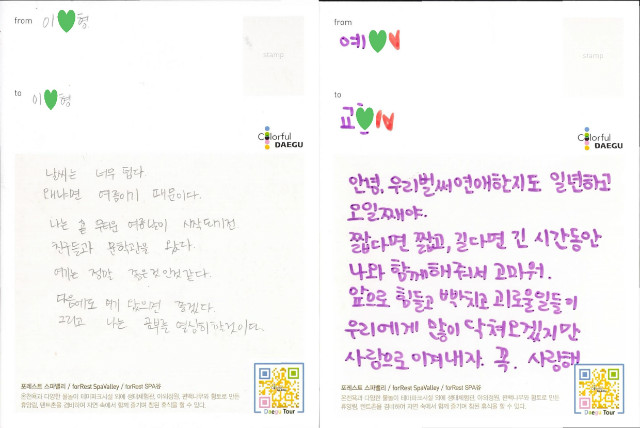 from 이 형
stamp
to 이 형
Colorful
DAEGU
날씨는 너무 덥다
왜냐면 여름이기 때문이다.
나는 곧 무더운 여름날이 시작되기전
친구들과 문학관을 왔다.
여기는 정말 좋은 것인것 같다.
다음에도 여기 왔으면 좋겠다.
그리고 나는 공부를 열심히 할것이다.
포레스트 스파밸리 / forRest SpaValley / forRest SPA谷
Daegu Tour
from
예
stamp
to
교
Colorful
DAEGU
안녕, 우리벌써연애한지도 일년하고
오일째야.
짧다면 짧고, 길다면 긴 시간동안
나와 함께해줘서 고마워.
앞으로 힘들고 벅차고 괴로울일들이
우리에게 많이 닥쳐오겠지만
사랑으로 이겨내자. 꼭. 사랑해
포레스트 스파밸리 / forRest SpaValley / forRest SPA谷
Daegu Tour